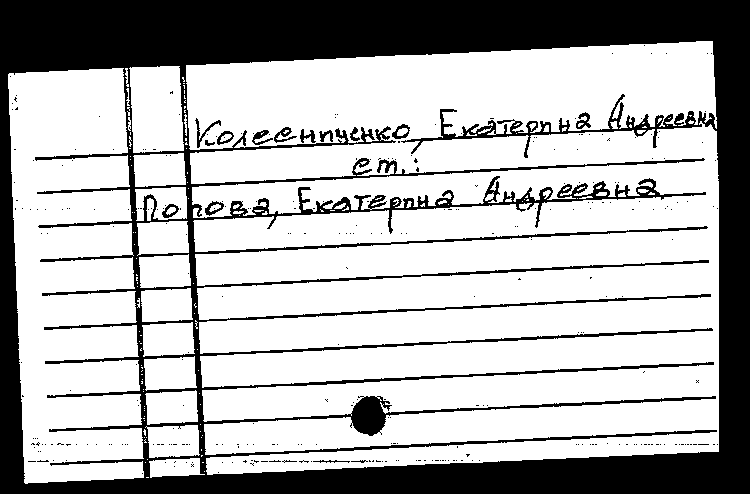 Колесниченко, Екатерина Андреевна
ст.:
Попова, Екатерина Андреевна